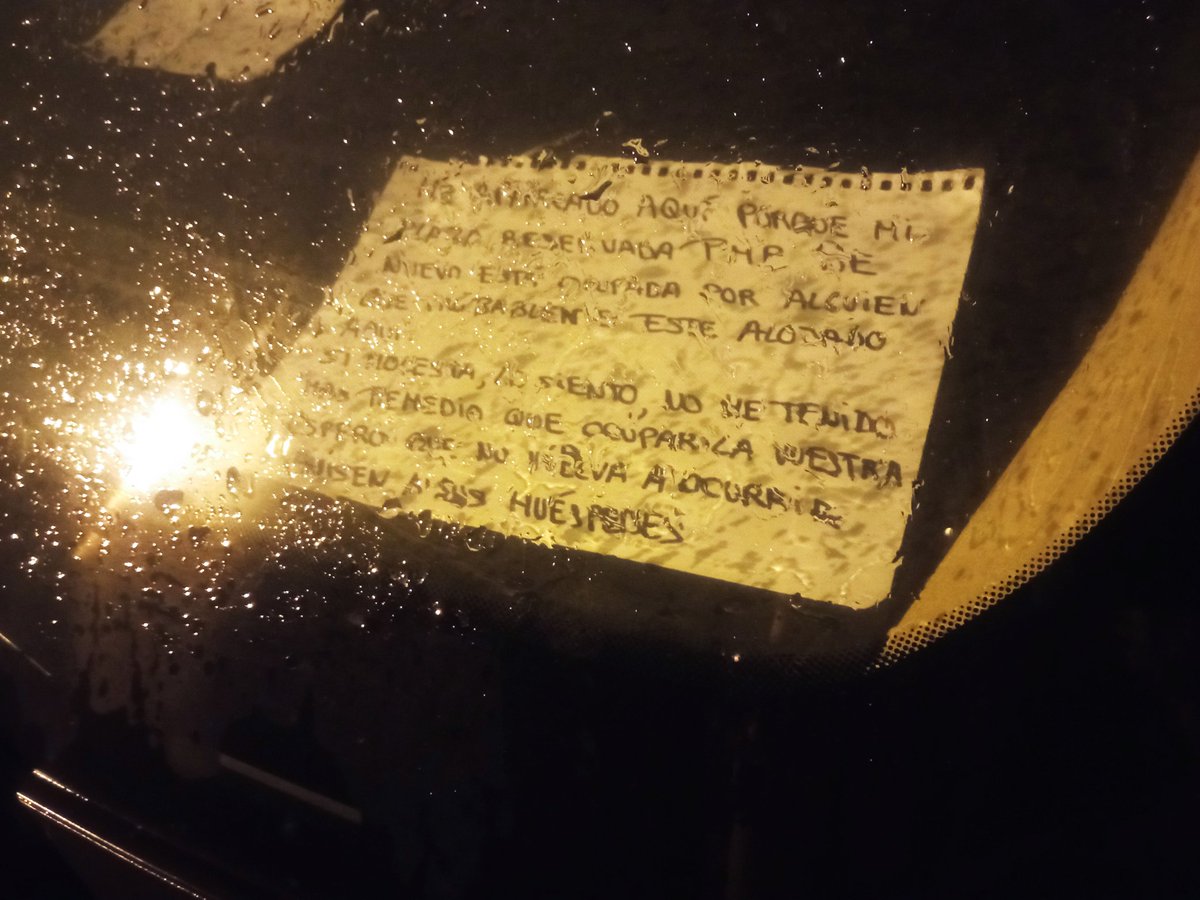 HE APARCADO AQUÍ PORQUE MI
PLAZA RESERVADA P.M.R DE
NUEVO ESTÁ OCUPADA POR ALGUIEN
QUE PROBABLEMENTE ESTE ALOJADO
AQUI
SI MOLESTA, LO SIENTO, NO HE TENIDO
MAS REMEDIO QUE OCUPAR LA VUESTRA
ESPERO QUE NO VUELVA A OCURRIR
AVISEN A SUS HUÉSPEDES